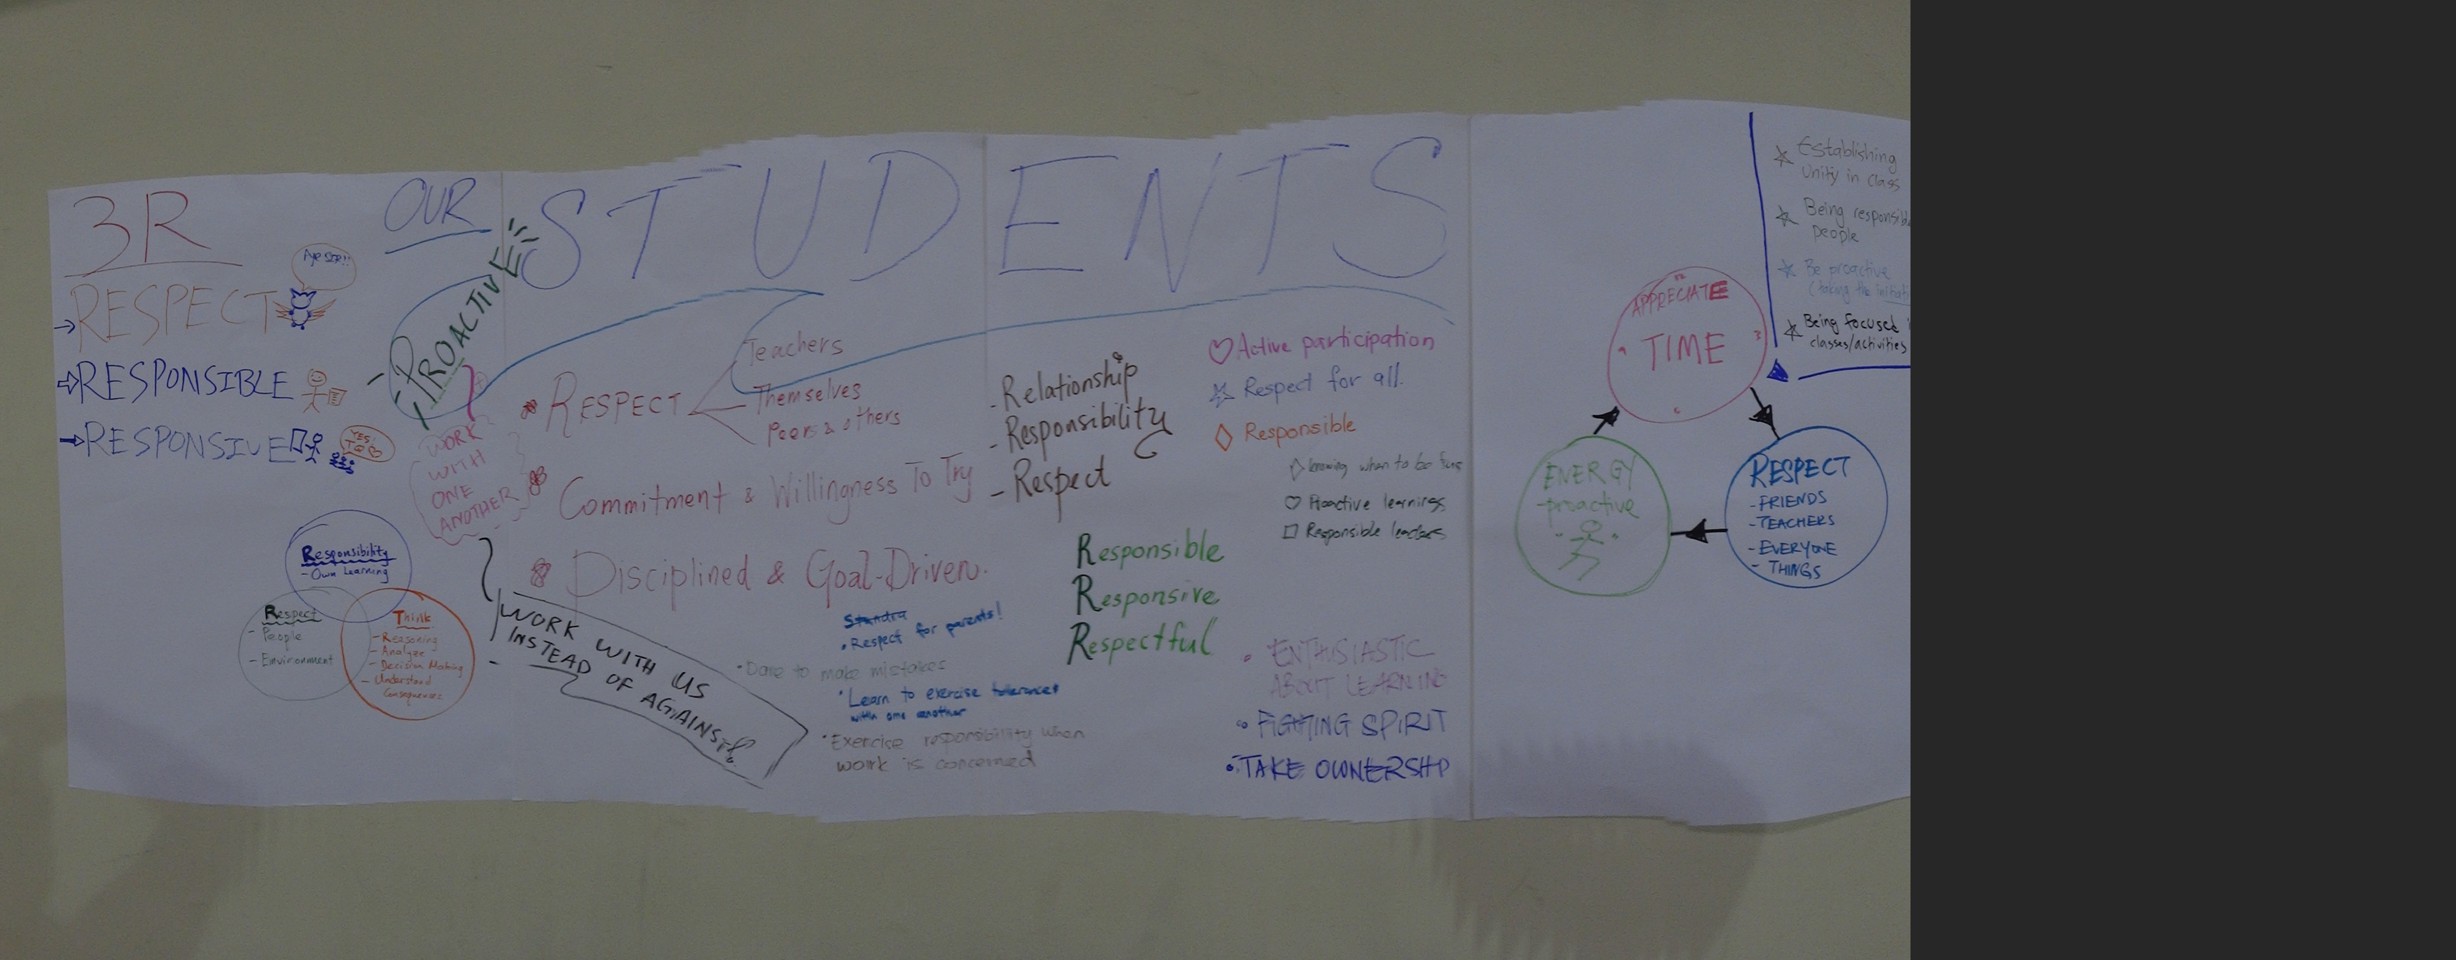 3R
Aye sir!!
RESPECT
RESPONSIBLE
RESPONSIVE
YES
Responsibility
- Own Learning
Respect
- People
- Environment
Think
- Reasoning
- Analyze
- Decision Making
- Understand
Consequences
OUR STUDENTS
PROACTIVE
WORK
WITH
ONE
ANOTHER
RESPECT
Teachers
Themselves
Peers & others
Commitment & Willingness To Try
Disciplined & Goal-Driven.
WORK WITH US
INSTEAD OF AGAINST
• Respect for parents!
• Dare to make mistakes
• Learn to exercise tolerance
with one another
• Exercise responsibility when
work is concerned
- Relationship
- Responsibility
- Respect
Responsible
Responsive
Respectful
Active participation
Respect for all.
Responsible
knowing when to be
Proactive learnings
Responsible leaders
• ENTHUSIASTIC
ABOUT LEARNING
• FIGHTING SPIRIT
• TAKE OWNERSHP
APPRECIATE
TIME
12
3
6
9
RESPECT
- FRIENDS
- TEACHERS
- EVERYONE
- THINGS
ENERGY
- proactive
Establishing
Unity in class
Being responsib
people
Be proactive
(taking the initiati
Being focused
classes/activities